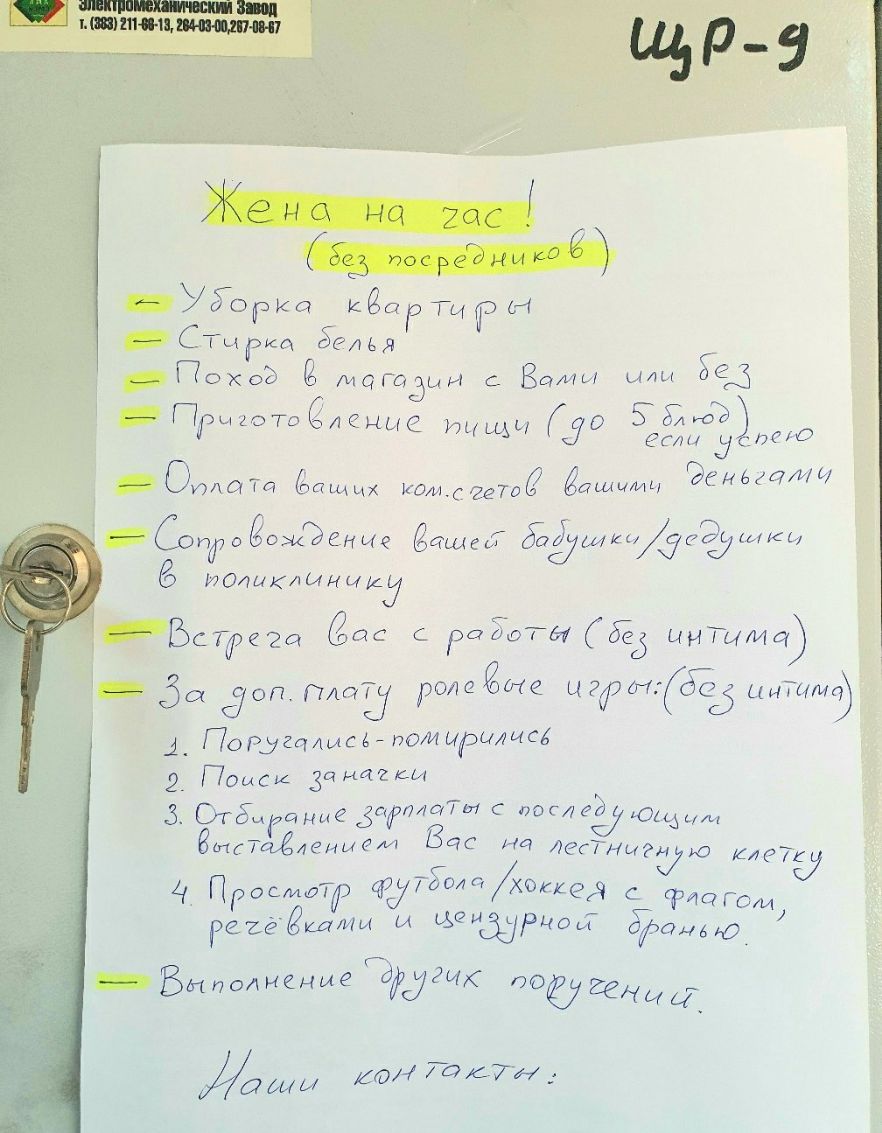 Электромеханический Завод
т. (383) 211-66-13, 264-03-00, 267-08-67
ЩР-9
Жена на час!
(без посредников)
- Уборка квартиры
- Стирка белья
- Поход в магазин с Вами или без
- Приготовление пищи (до 5 блюд)
если успею
- Оплата ваших ком. счетов вашими деньгами
- Сопровождение вашей бабушки/дедушки
в поликлинику
- Встреча вас с работы (без интима)
- За доп. плату ролевые игры: (без интима)
1. Поругались-помирились
2. Поиск заначки
3. Отбирание зарплаты с последующим
выставлением Вас на лестничную клетку
4. Просмотр футбола/хоккея с флагом,
речёвками и цензурной бранью.
- Выполнение других поручений.
Наши контакты: